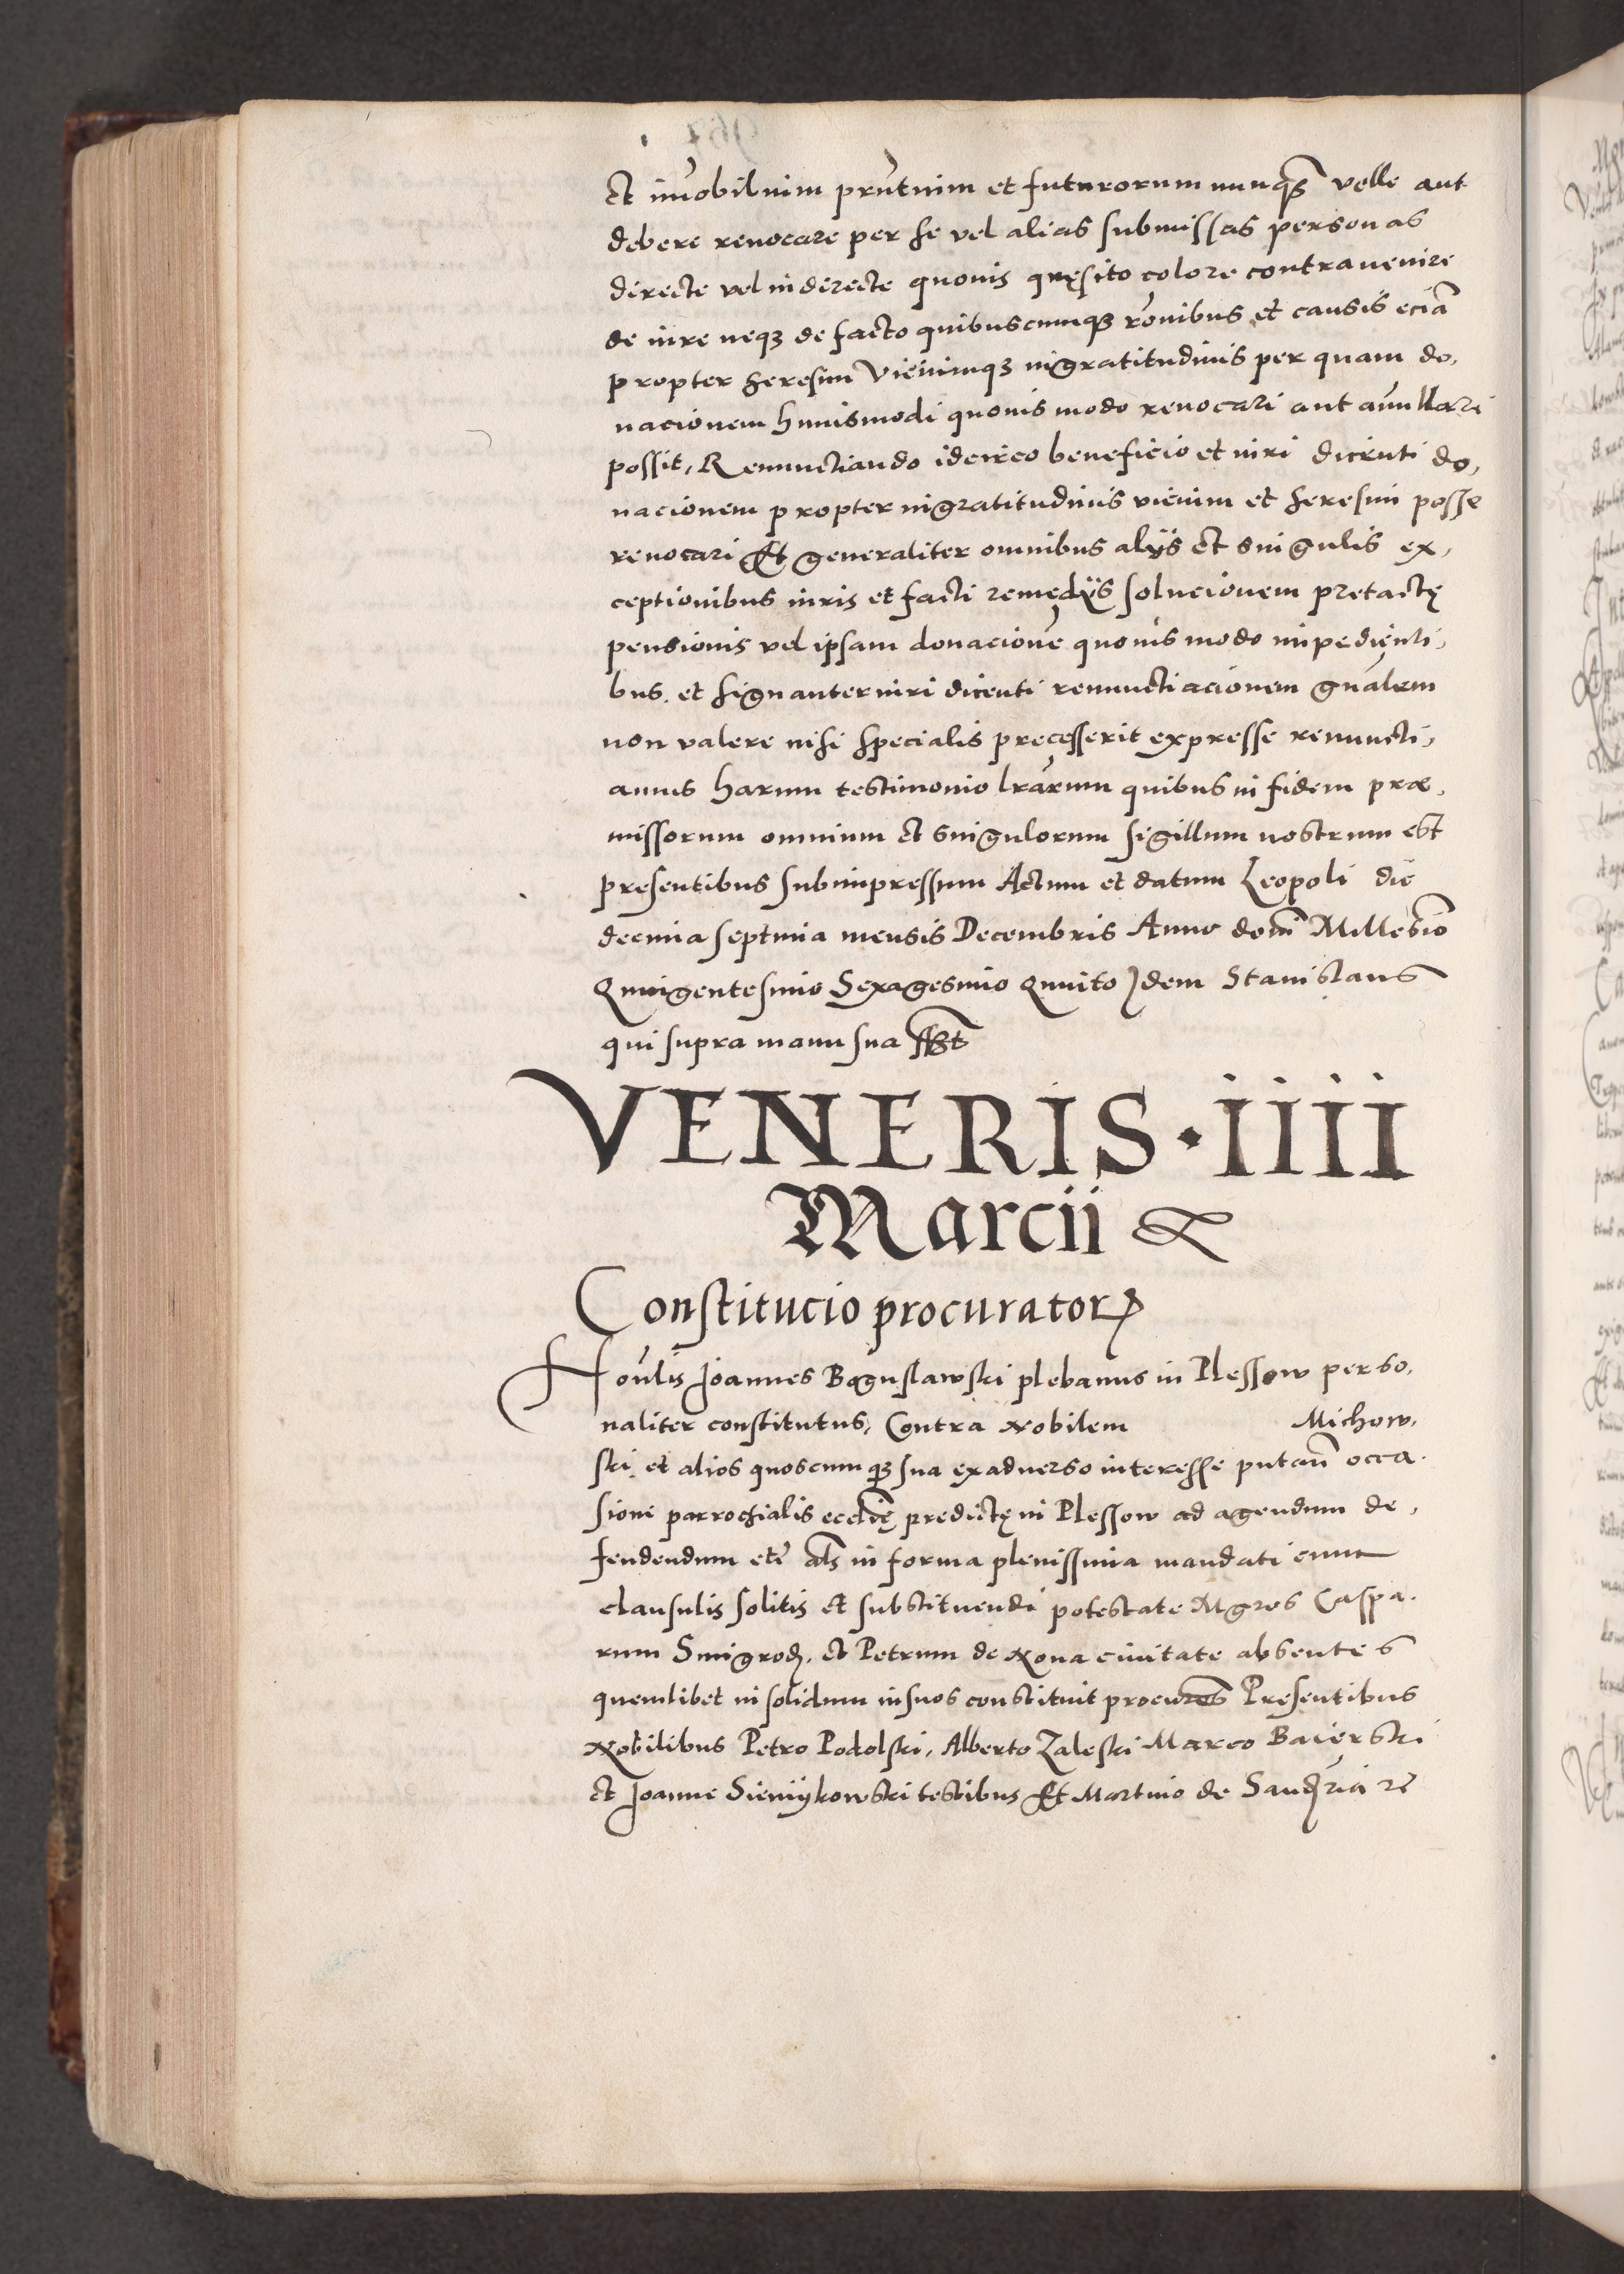 et im̃obilium prñtuim et futurorum nunqꝫ velle aut
debere reuocare per se vel alias submissas personas
directe vel indirecte quouis quęsito colore contrauenire
de iure neqꝫ de facto quibuscunqꝫ rõnibus et causis eciã
propter heresim viciumqꝫ ingratitudinis per quam do,
nacionem huiusmodi quouis modo reuocari aut añullari
possit, Renunctiando idcirco beneficio et iuri dicenti do,
nacionem propter ingratitudinis vicium et heresim posse
reuocari Et generaliter omnibus alijs et singulis ex,
ceptionibus iuris et facti remedijs solucionem pretactę
pensionis vel ipsam donacionẽ quouis modo impedienti,
bus. et signanter iuri dicenti renunctiacionem gñalem
non valere nisi specialis precesserit expresse renuncti,
amus harum testimonio lrãrum quibus in fidem præ,
missorum omnium et singulorum sigillum nostrum est
presentibus subimpressum Actum et datum Leopoli die
decima septima mensis Decembris Anno domĩ Millesĩo
Quingentesimo Sexagesimo Quinto Idem Stanislaus
qui supra manu sua sszt
VENERIS · IIII
Marcii &
Constitucio procuratorꝝ
Hoñlis Joannes Boguslawski plebanus in Plessow perso,
naliter constitutus, Contra Nobilem Michow,
ski et alios quoscumqꝫ sua ex aduerso interesse putañ occa.
sione parrochialis eccłię predictę in Plessow ad agendum de,
fendendum etč ałs in forma plenissima mandati cum
clausulis solitis et substituendi potestate Mgros Caspa.
rum Smigrodꝫ. et Petrum de Noua ciuitate absentes
quemlibet in solidum in suos constituit procures Presentibus
Nobilibus Petro Podolski, Alberto Zaleski Marco Baierski
et Joanne Sieniykowski testibus Et Martino de Sandꝫria rč